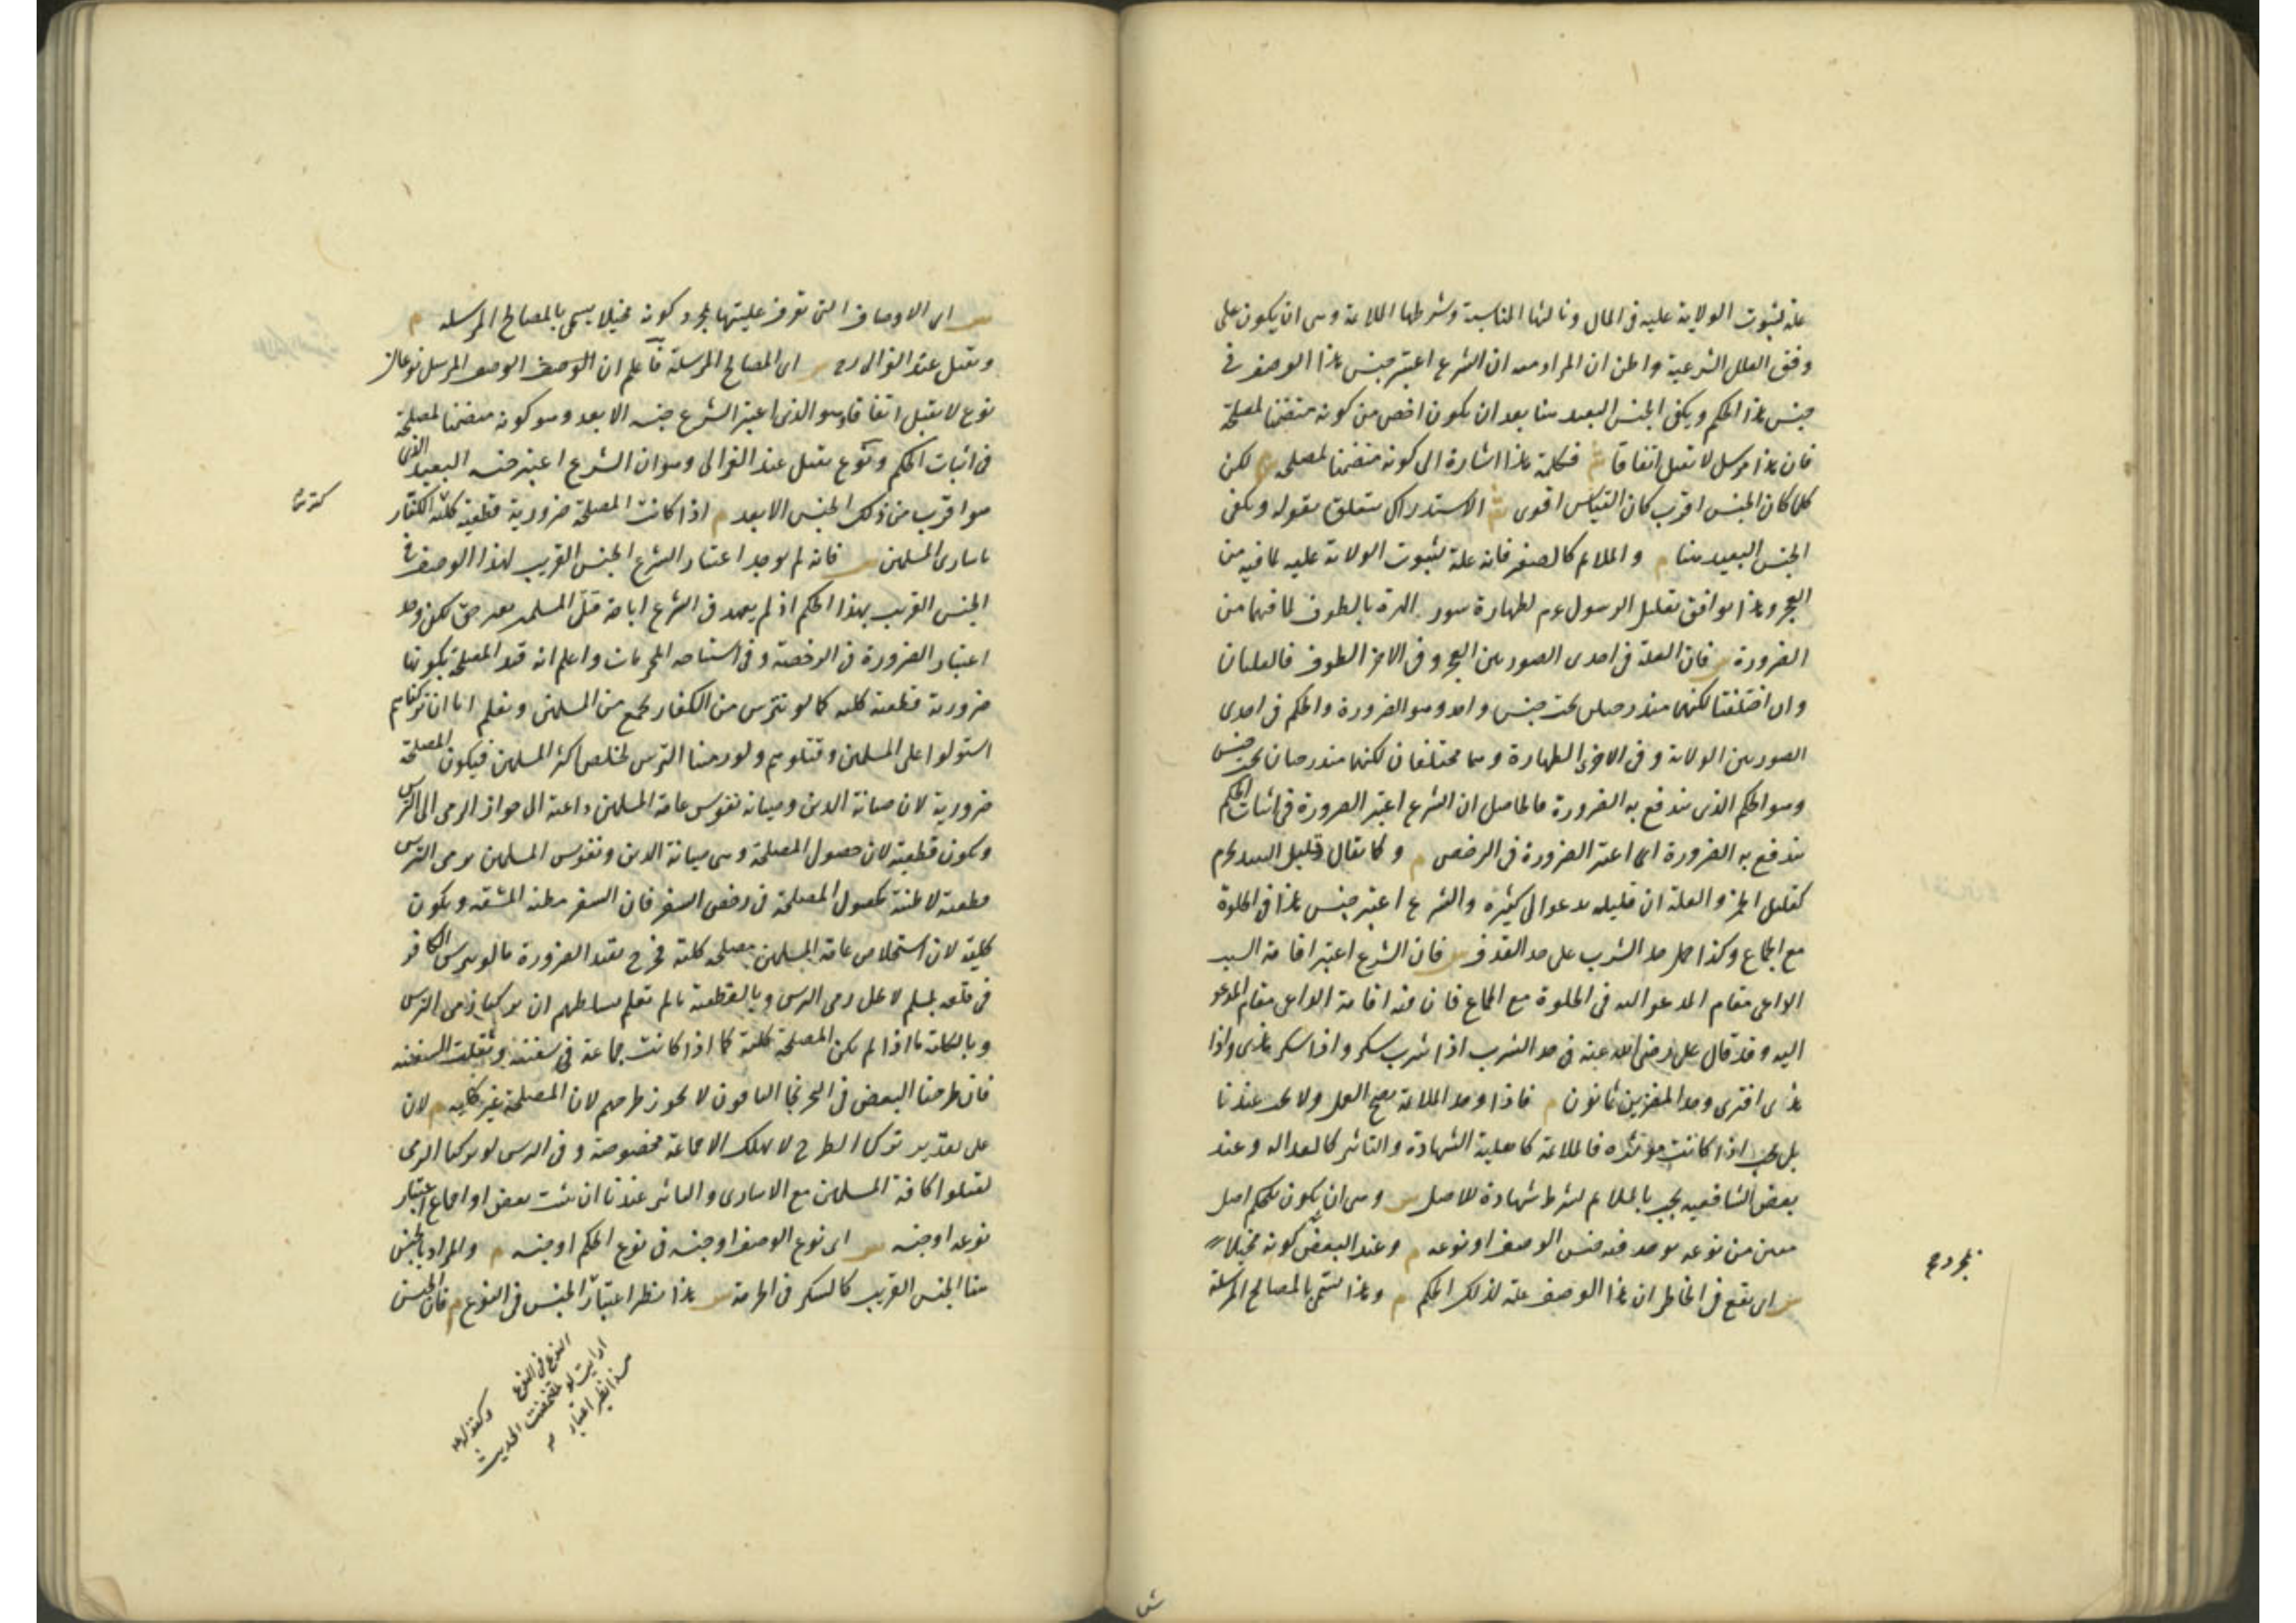 علة لثبوت الولاية عليه فى المال وثالثها المناسبة وشرطها الملائمة وهى ان يكون على
وفق العلل الشرعية واظن ان المراد منه ان الشرع اعتبر جنس هذا الوصف فى
جنس هذا الحكم ويكفى الجنس البعيد هنا بعد ان يكون اخص من كونه متضمنا لمصلحة
فان هذا مرسل لا يقبل اتفاقا ش فكلمة هذا اشارة الى كونه متضمنا لمصلحة م لكن
كلما كان الجنس اقرب كان القياس اقوى ش الاستدراك يتعلق بقوله ويكفى
الجنس البعيد هنا م والملائم كالصغر فانه علة لثبوت الولاية عليه لما فيه من
العجز وهذا يوافق تعليل الرسول عم لطهارة سور الهرة بالطوف لما فيهما من
الضرورة ش فان العلة فى احدى الصورتين العجز وفى الاخر الطوف فالعلتان
وان اختلفتا لكنهما مندرجتان تحت جنس واحد وهو الضرورة والحكم فى احدى
الصورتين الولاية وفى الاخرى الطهارة وهما مختلفان لكنهما مندرجان تحت جنس
وهو الحكم الذى يندفع به الضرورة فالحاصل ان الشرع اعتبر الضرورة فى اثبات الحكم
يندفع به الضرورة اى اعتبر الضرورة فى الرخص م وكما يقال قليل النبيذ يحرم
كقليل الخمر والعلة ان قليله يدعو الى كثيره والشرع اعتبر جنس هذا فى الخلوة
مع الجماع وكذا حمل حد الشرب على حد القذف ش فان الشرع اعتبر اقامة السبب
الداعى مقام المدعو اليه فى الخلوة مع الجماع فان فيه اقامة الداعى مقام المدعو
اليه وقد قال على رضى الله عنه فى حد الشرب اذا شرب سكر واذا سكر هذى واذا
هذى افترى وحد المفترين ثمانون م فاذا وجد الملائمة يصح العمل ولا يجب عندنا
بل يجب اذا كانت مؤثرة فالملائمة كاهلية الشهادة والتاثير كالعدالة وعند
بعض الشافعية يجب بالملائم بشرط شهادة الاصل ش وهى ان يكون للحكم اصل
معين من نوعه يوجد فيه جنس الوصف او نوعه م وعند البعض كونه مخيلا
ش اى يقع فى الخاطر ان هذا الوصف علة لذلك الحكم م وهذا يسمى بالمصالح المرسلة
بمجرد صح
ش اى الاوصاف التى تعرف عليتها بمجرد كونه مخيلا يسمى بالمصالح المرسلة م
وتقبل عند الغزالى رح ش اى المصالح المرسلة فاعلم ان الوصف الوصف المرسل نوعان
نوع لا يقبل اتفاقا وهو الذى اعتبر الشرع جنسه الابعد وهو كونه متضمنا لمصلحة
فى اثبات الحكم ونوع يقبل عند الغزالى وهو ان الشرع اعتبر جنسه البعيد الذى
هو اقرب من ذلك الجنس الابعد م اذا كانت المصلحة ضرورية قطعية كلية الكفار
باسارى المسلمين ش فانه لم يوجد اعتبار الشرع الجنس القريب لهذا الوصف فى
الجنس القريب بهذا الحكم اذ لم يعهد فى الشرع اباحة قتل المسلم بغير حق لكن وجد
اعتبار الضرورة فى الرخصة وفى استباحة المحرمات واعلم انه قيد المصلحة بكونها
ضرورية قطعية كلية كما لو تترس من الكفار بجمع من المسلمين ونعلم انا ان تركناهم
استولوا على المسلمين وقتلوهم ولو رمينا الترس لخلص اكثر المسلمين فيكون المصلحة
ضرورية لان صيانة الدين وصيانة نفوس عامة المسلمين داعية الى جواز الرمى الى الترس
وتكون قطعية لان حصول المصلحة وهى صيانة الدين ونفوس المسلمين برمى الترس
قطعية لا ظنية كحصول المصلحة فى رخص السفر فان السفر مظنة المشقة ويكون
كلية لان استخلاص عامة المسلمين مصلحة كلية فخرج بقيد الضرورة ما لو تترس الكافر
فى قلعة بمسلم لا يحل رمى الترس وبالقطعية ما لم نعلم تسلطهم ان تركنا رمى الترس
وبالكلية ما اذا لم يكن المصلحة كلية كما اذا كانت جماعة فى سفينة وثقلت السفينة
فان طرحنا البعض فى البحر نجا الباقون لا يجوز طرحهم لان المصلحة غير كلية م لان
على تقدير ترك الطرح لا يهلك الا جماعة مخصوصة وفى الترس لو تركنا الرمى
لقتلوا كافة المسلمين مع الاسارى والتاثير عندنا ان يثبت بنص او اجماع اعتبار
نوعه او جنسه ش اى نوع الوصف او جنسه فى نوع الحكم او جنسه م والمراد بالجنس
هنا الجنس القريب كالسكر فى الحرمة ش هذا نظير اعتبار الجنس فى النوع م فان الجنس
النوع فى النوع وكقوله
ارايت لو تمضمضت الحديث
ش هذا نظير اعتبار